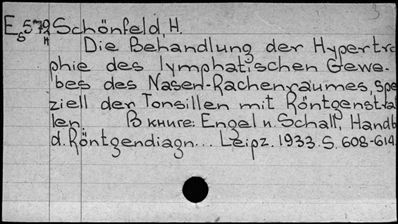 E 5-79 Schönfeld, H.
S H Die Behandlung der Hypertro
phie des lymphatischen Gewe-
bes des Nasen-Rachenraumes, spe
ziell der Tonsillen mit Röntgenstra
len В книге: Engel u. Schall, Handb
d. Röntgendiagn... Leipz. 1933. S. 608-614